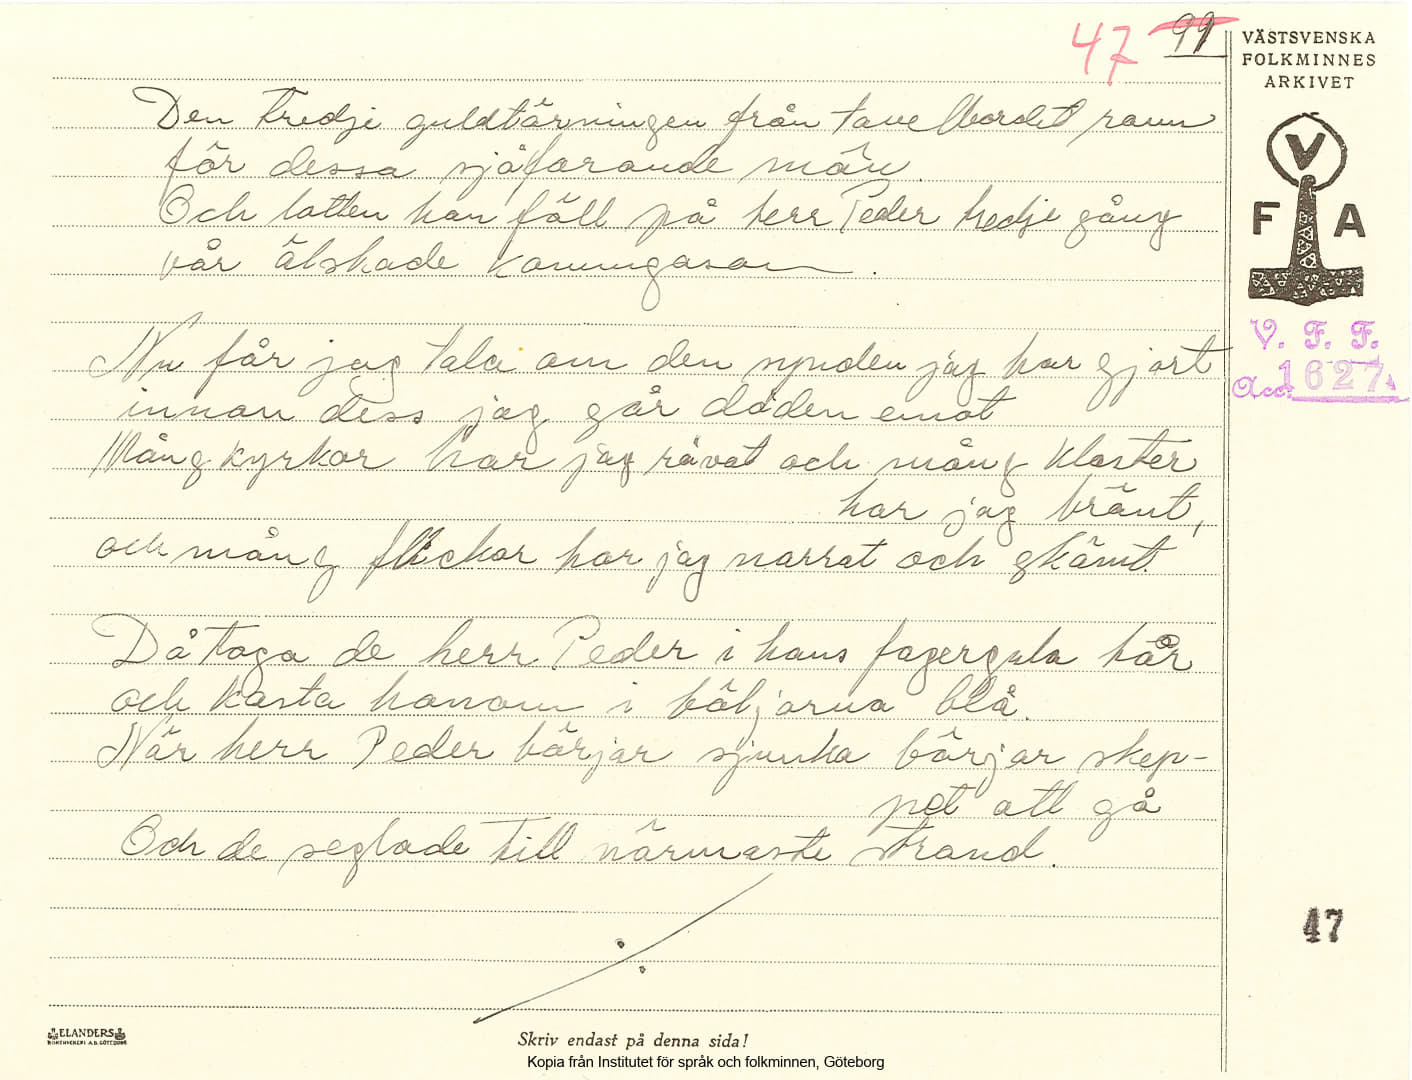 47 99
VÄSTSVENSKA
FOLKMINNES
ARKIVET
Den tredje guldtärningen från tavelbordet rann
för dessa sjöfarande män.
Och lotten han föll på herr Peder tredje gång
vår älskade konungason.
V
F A
Nu får jag tala om den synden jag har gjort
innan dess jag går döden emot
Mång kyrkor har jag rövat och mång kloster
har jag bränt,
och mång flickor har jag narrat och skämt.
V. F. F.
Acc. 1627
Då toga de herr Peder i hans fagergula hår
och kasta honom i böljorna blå.
När herr Peder börjar sjunka börjar skep-
pet att gå
Och de seglade till närmaste strand.
47
ELANDERS
BOKTRYCKERI A.B. GÖTEBORG
Skriv endast på denna sida!
Kopia från Institutet för språk och folkminnen, Göteborg